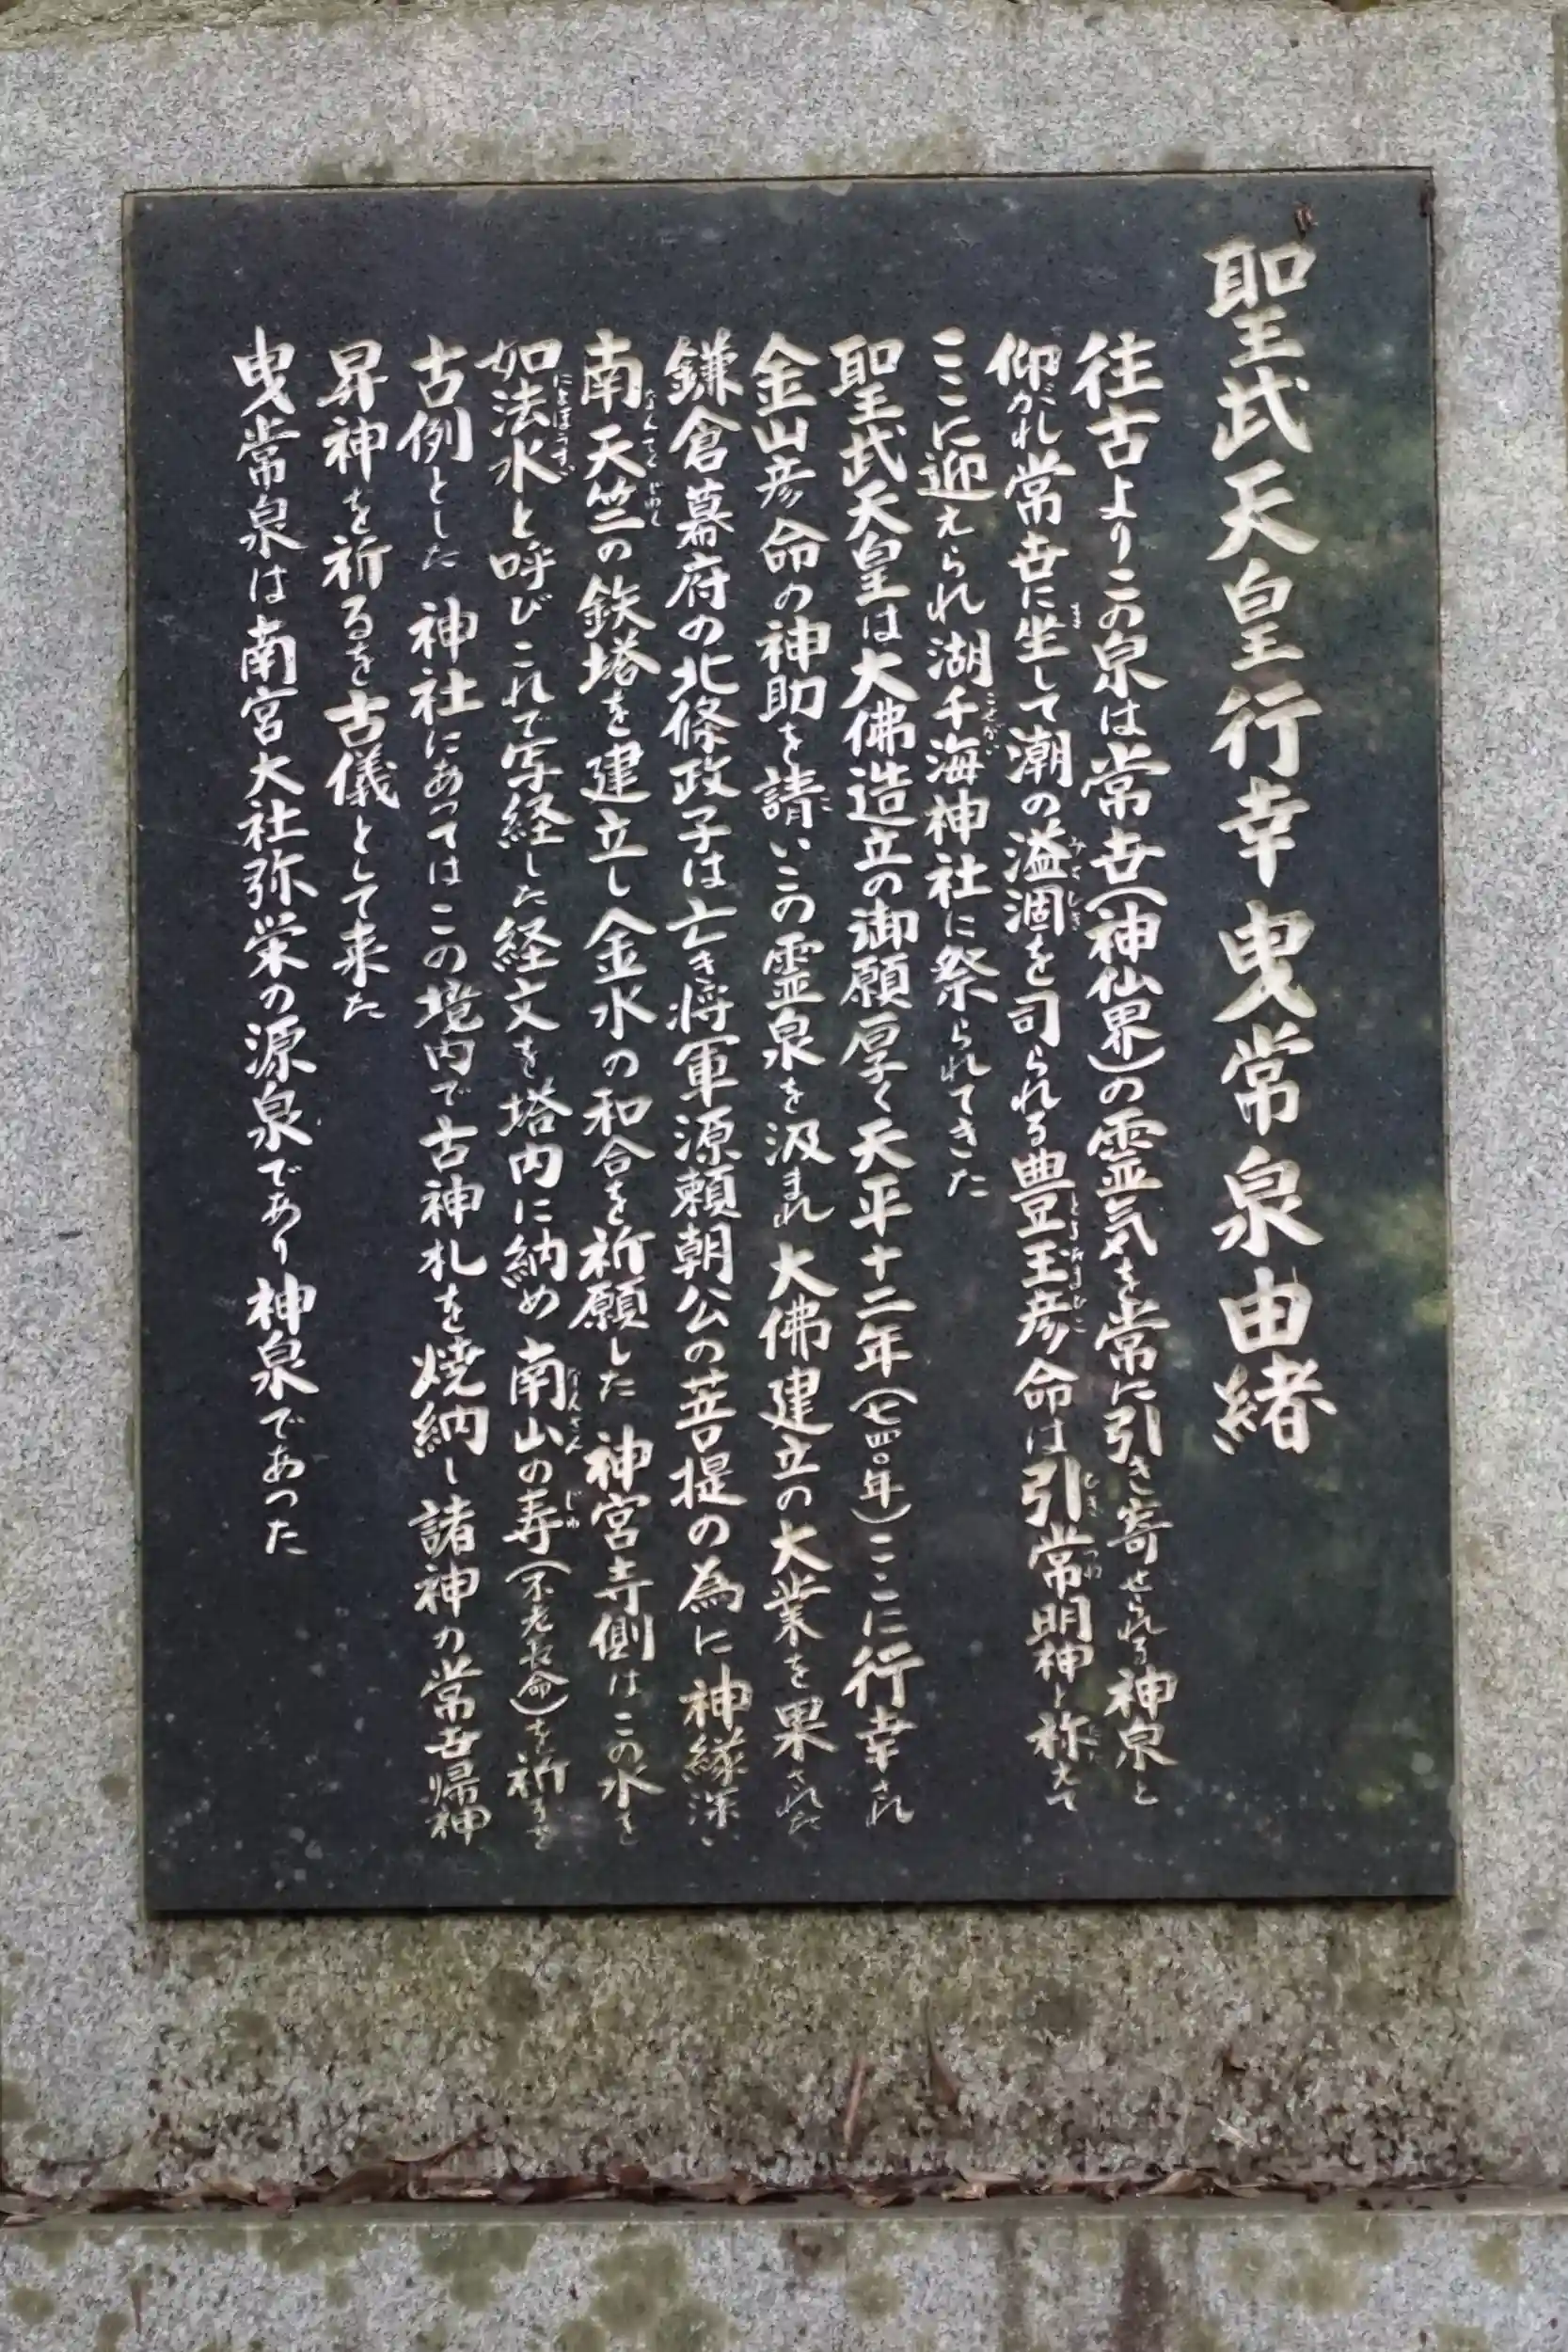 聖武天皇行幸曳常泉由緒
往古よりこの泉は常世(神仙界)の霊気を常に引き寄せられる神泉と
仰がれ常世に坐して潮の溢涸を司られる豊玉彦命は引常明神と称えて
ここに迎えられ湖千海神社に祭られてきた
聖武天皇は大佛造立の御願厚く天平十二年(七四〇年)ここに行幸され
金山彦命の神助を請いこの霊泉を汲まれ大佛建立の大業を果された
鎌倉幕府の北條政子は亡き将軍源頼朝公の菩提の為に神縁深い
南天竺の鉄塔を建立し金水の和合を祈願した神宮寺側はこの水を
如法水と呼びこれで写経した経文を塔内に納め南山の寿(不老長命)を祈るを
古例とした 神社にあつてはこの境内で古神札を焼納し諸神の常世帰神
昇神を祈るを古儀として来た
曳常泉は南宮大社弥栄の源泉であり神泉であつた